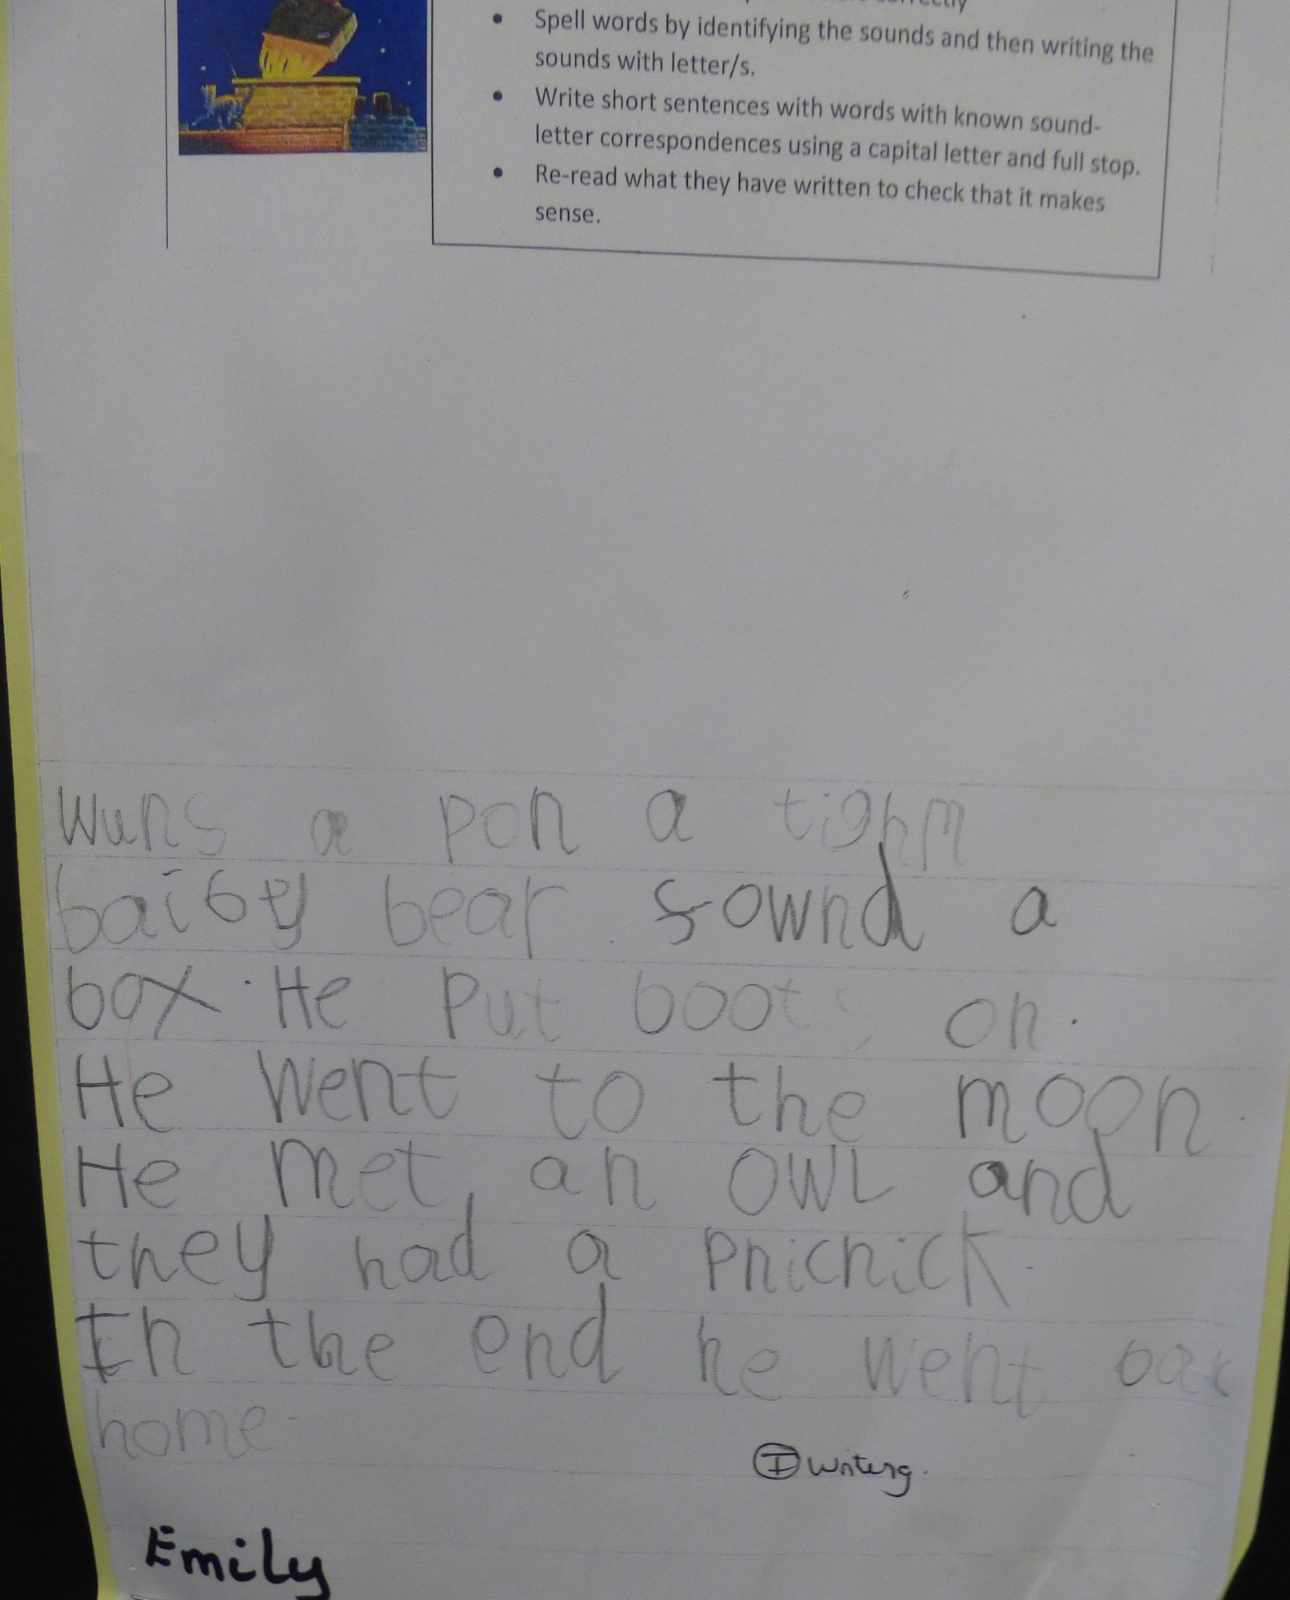 Spell words by identifying the sounds and then writing the
sounds with letter/s.
Write short sentences with words with known sound-
letter correspondences using a capital letter and full stop.
Re-read what they have written to check that it makes
sense.
Wuns a pon a tighm
baiby bear fownd a
box. He put boots on.
He went to the moon.
He met an owl and
they had a pnicnick.
In the end he went bac
home.
I writing.
Emily